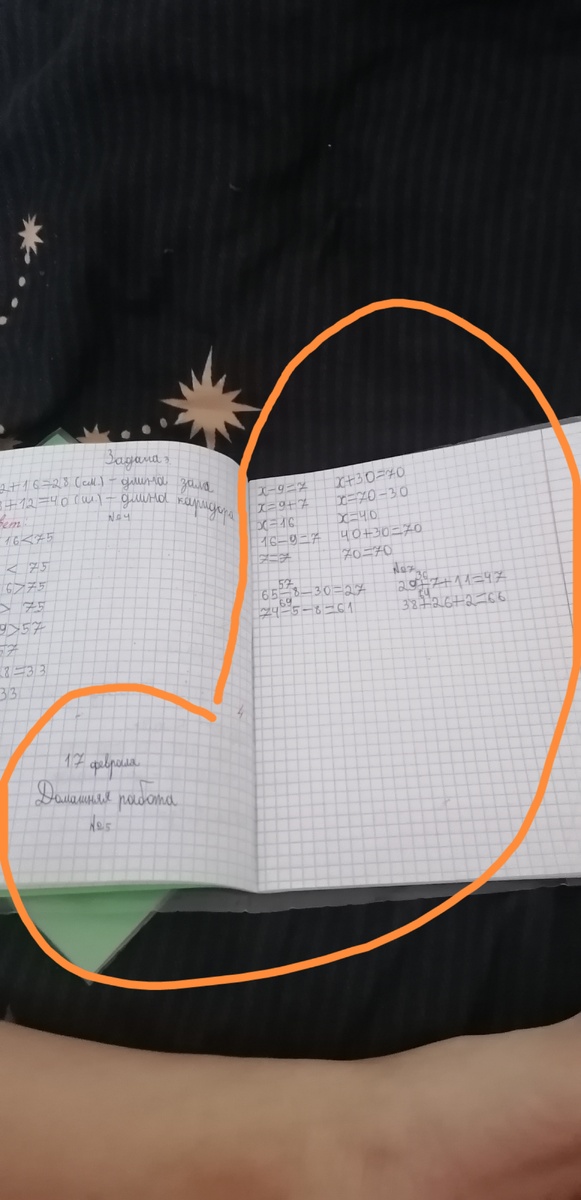 Задача
2+16=28(см.) - длина зала
+12=40(ш) - длина каридора
№4
16<75
< 75
6>75
> 75
9>57
57
8=33
33
4
17 февраля
Домашняя работа
№5
x-9=7
x=9+7
x=16
16-9=7
7=7
x+30=70
x=70-30
x=40
40+30=70
70=70
№7
57
65-8-30=27
69
74-5-8=61
36
29+7+11=47
64
38+26+2=66